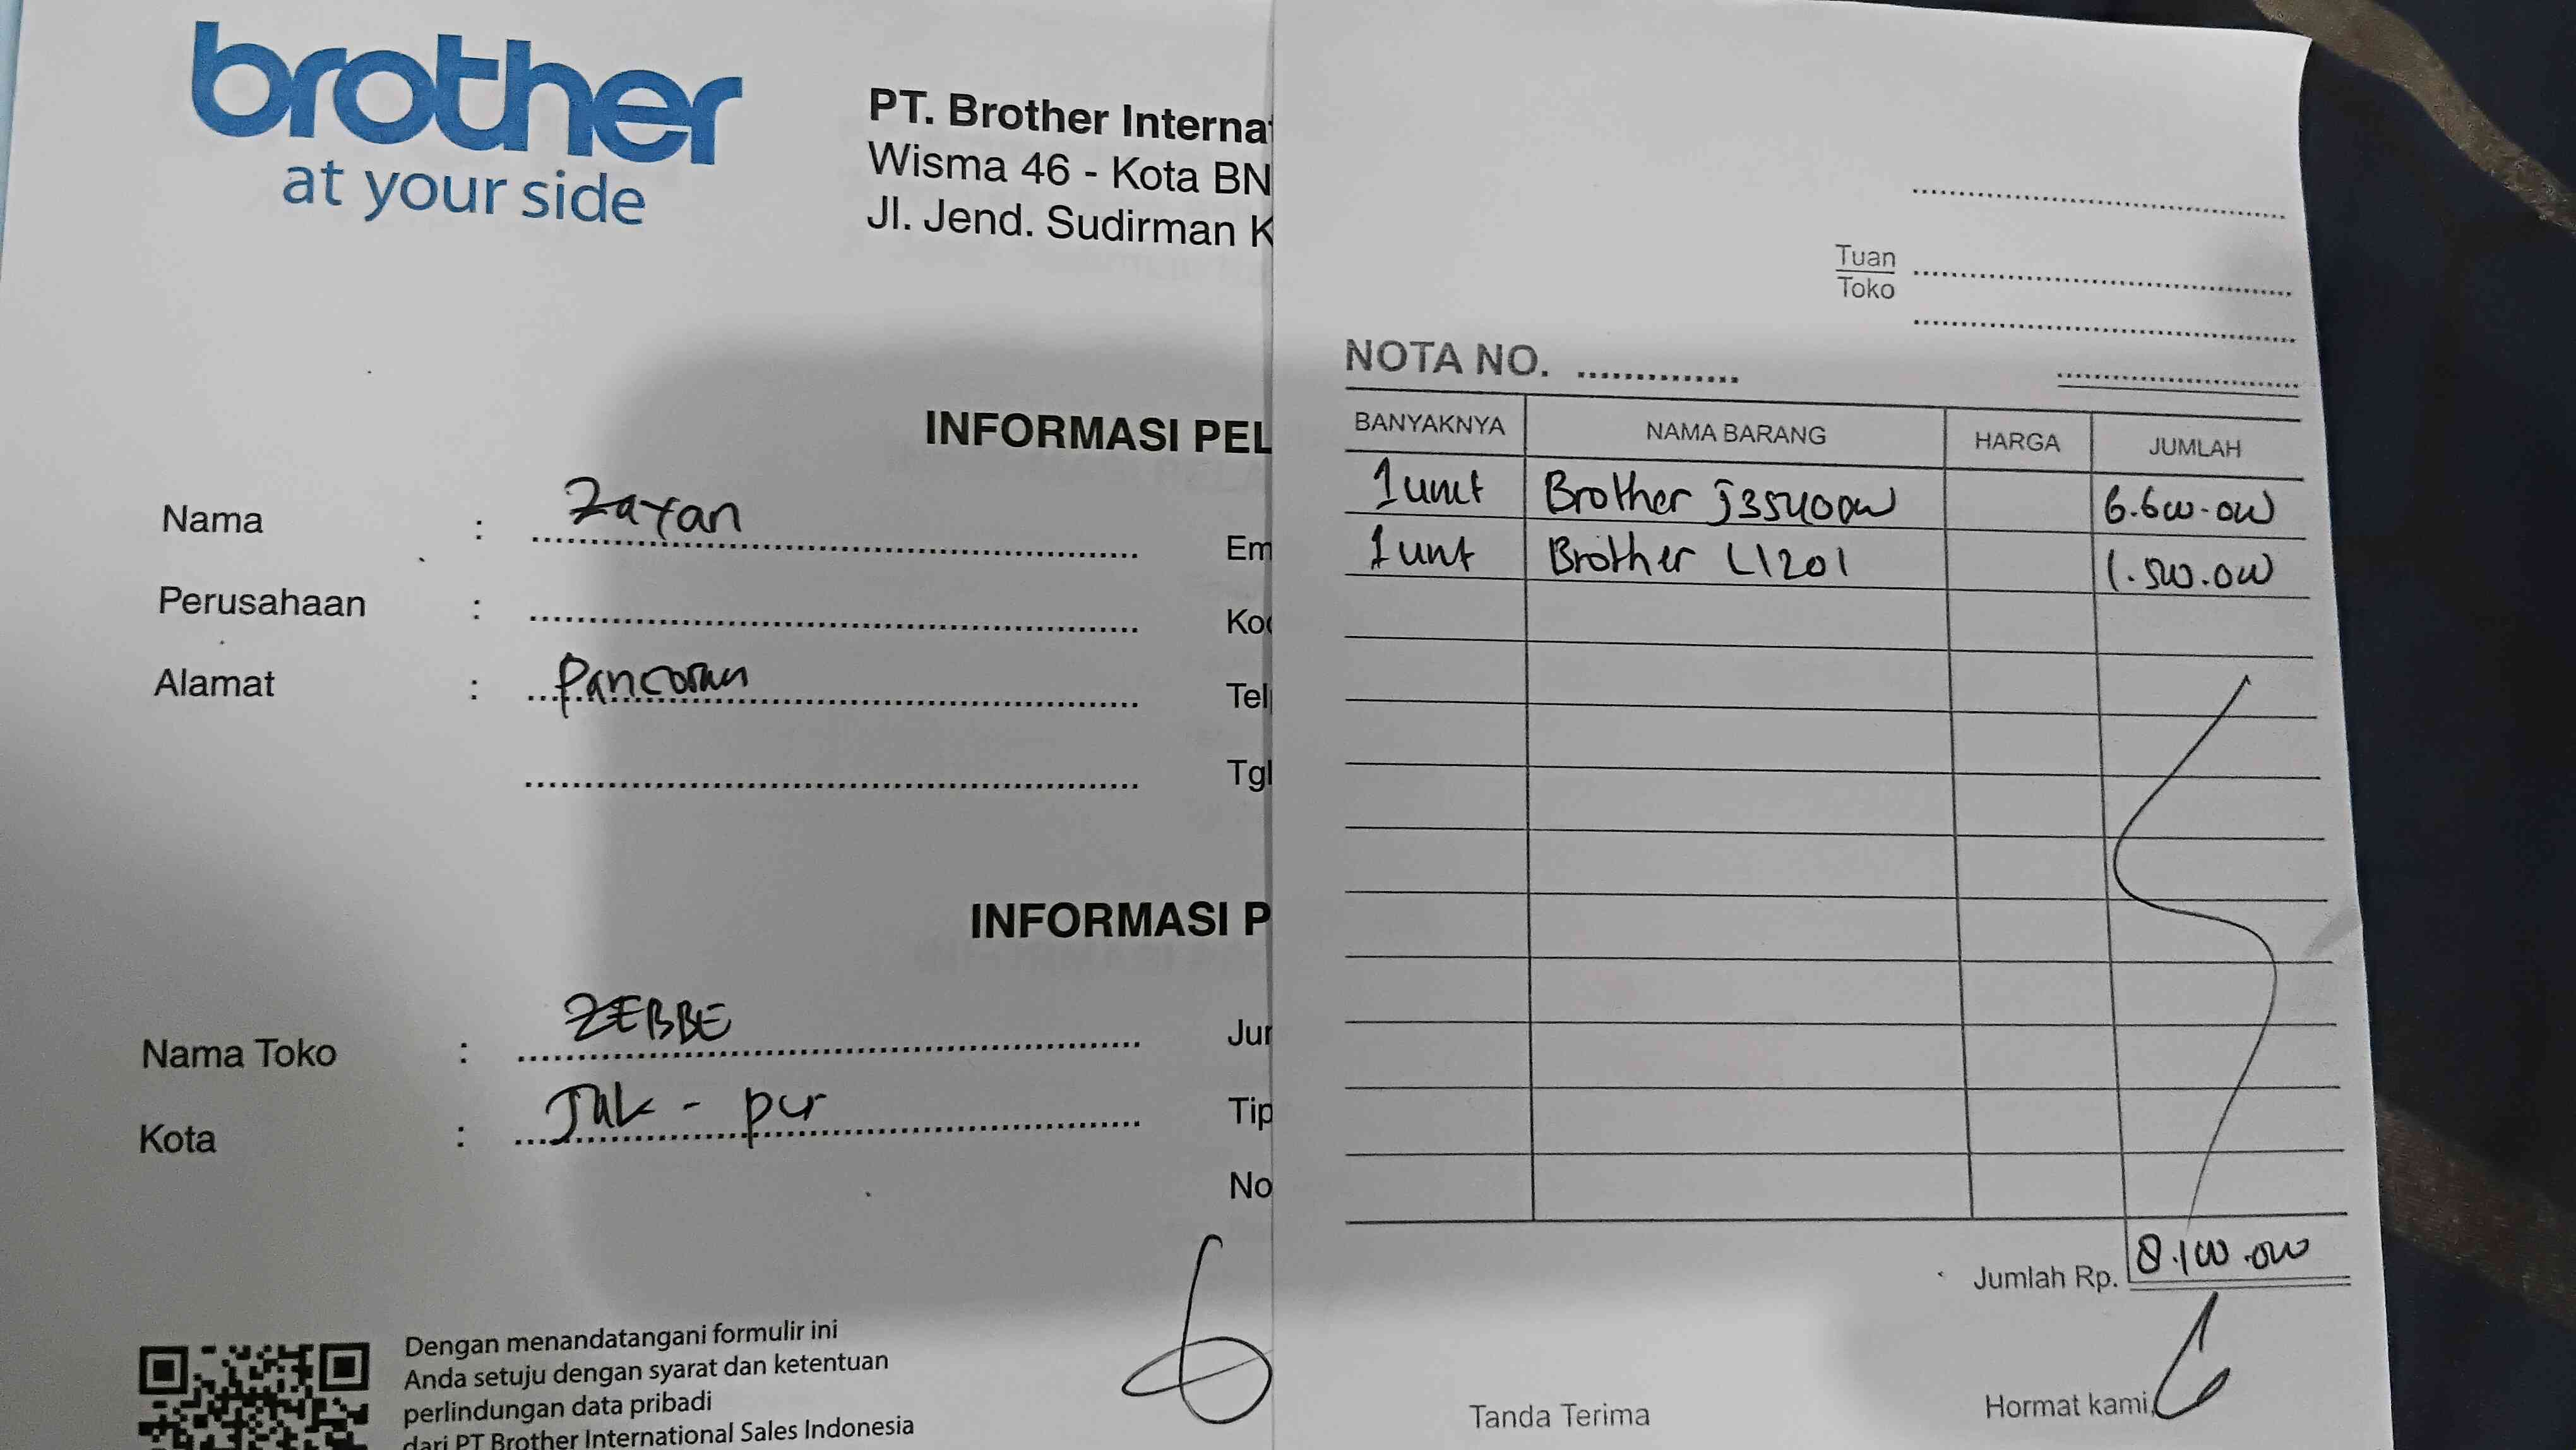 brother
at your side
PT. Brother Internat
Wisma 46 - Kota BN
Jl. Jend. Sudirman K
INFORMASI PEL
Nama : Zayan
Em
Perusahaan :
Kod
Alamat : Pancoran
Tel
Tgl
INFORMASI P
Nama Toko : ZEBBE
Jur
Kota : Jak - pur
Tip
No
Dengan menandatangani formulir ini
Anda setuju dengan syarat dan ketentuan
perlindungan data pribadi
dari PT Brother International Sales Indonesia
Tuan
Toko
NOTA NO.
BANYAKNYA NAMA BARANG HARGA JUMLAH
1 unit Brother J3540DW 6.600.000
1 unit Brother L1201 1.500.000
Jumlah Rp. 8.100.000
Tanda Terima Hormat kami,